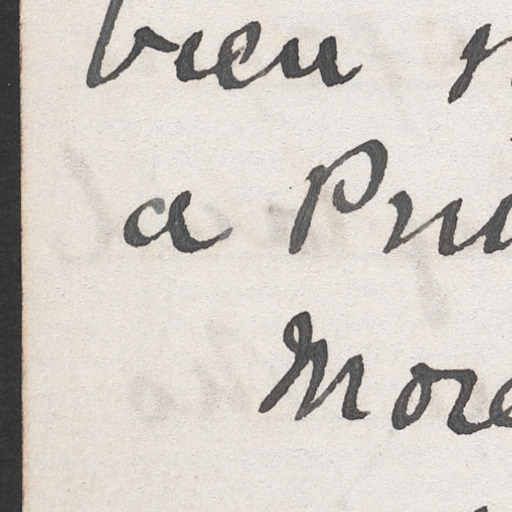 bien
a Pri
More